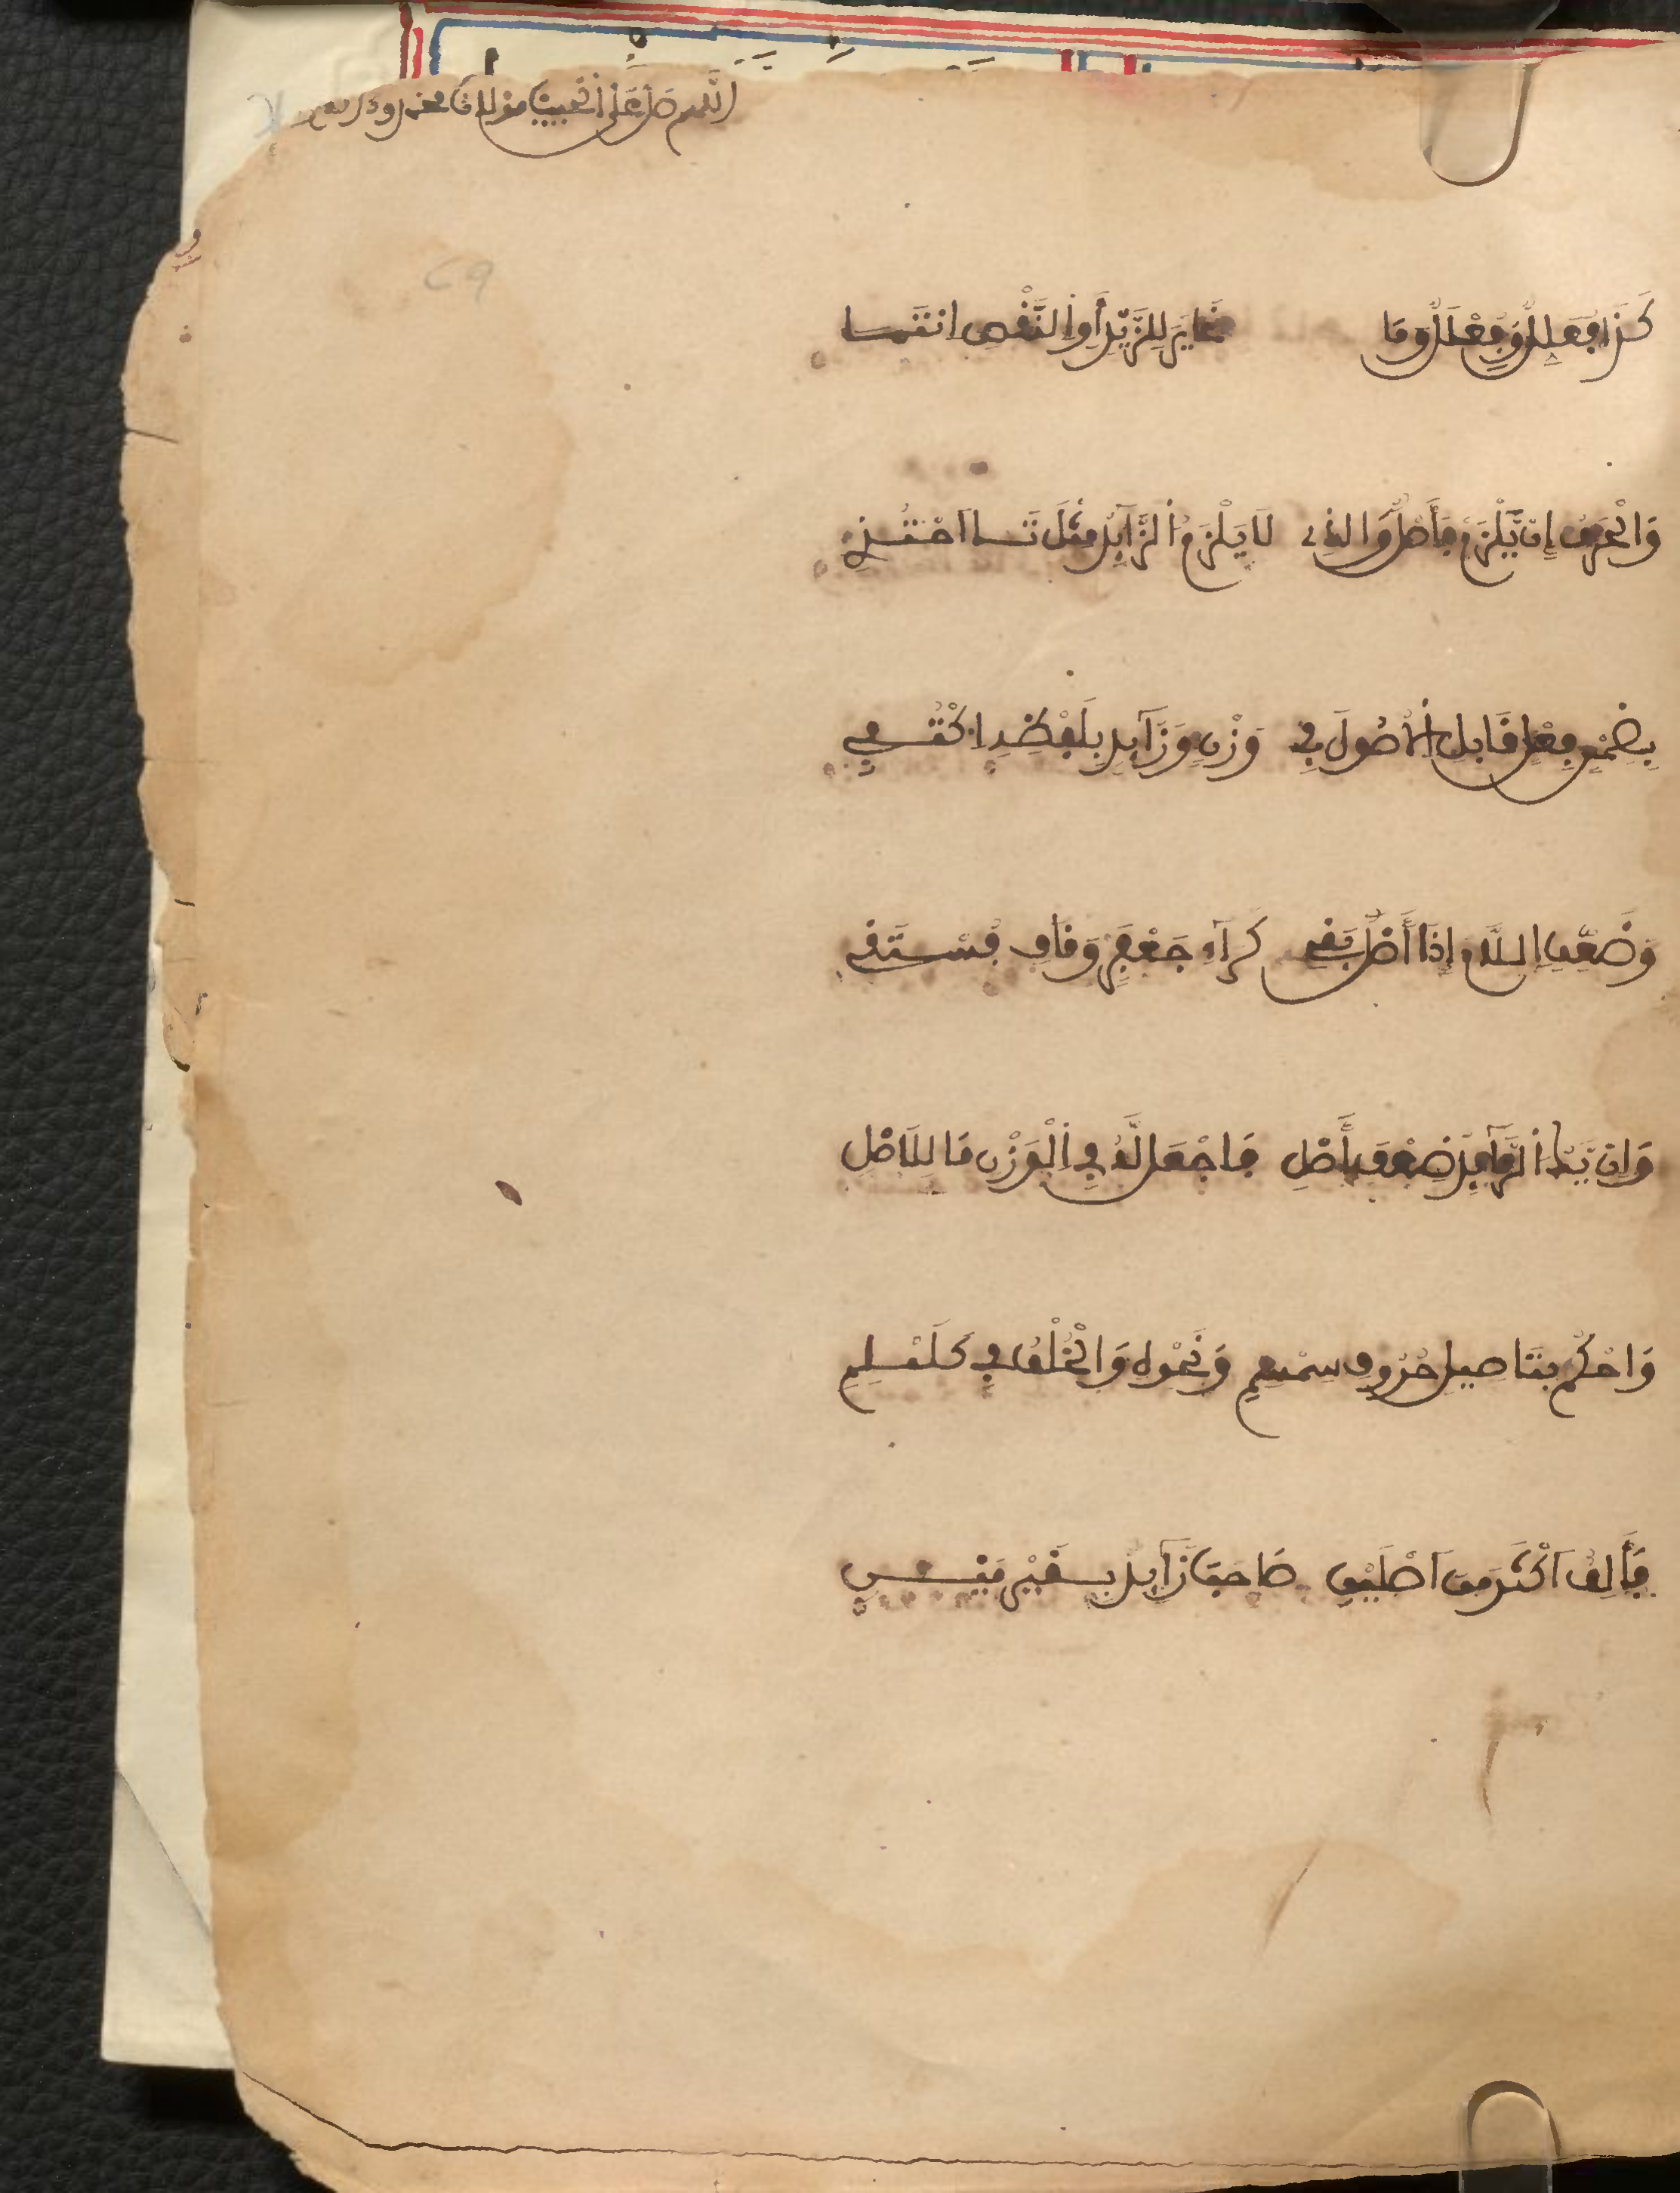 اللهم صل على نبينا مولانا محمد وءاله
كَذَا فُعَلِلٌ وَفِعْلَلٌ وَمَا غَايَرَ لِلزَّيْدِ أَوِ النَّقْصِ انْتَمَا
وَالْحَرْفُ إِنْ يَّلْزَمْ فَأَصْلٌ وَالذِى لَا يَلْزَمُ الزَّآئِدُ مِثْلَ تَا احْتُذِى
بِضِمْنِ فِعْلٍ قَابِلِ الْأُصُولَ فِى وَزْنٍ وَزَآئِدٌ بِلَفْظِهِ اكْتُفِى
وَضَعِّفِ اللَّامَ إِذَا أَصْلٌ بَقِى كَرَآءِ جَعْفَرٍ وَقَافِ فُسْتَقِ
وَإِنْ يَّكُ الزَّآئِدُ ضِعْفَ أَصْلِ فَاجْعَل لَّهُ فِى الْوَزْنِ مَا لِلْأَصْلِ
وَاحْكُمْ بِتَاصِيلِ حُرُوفِ سِمْسِمِ وَنَحْوِهِ وَالْخُلْفُ فِى كَلَمْلِمِ
فَأَلِفٌ أَكْثَرَ مِنْ أَصْلَيْنِ صَاحَبَ زَآئِدٌ بِغَيْرِ مَيْنِ